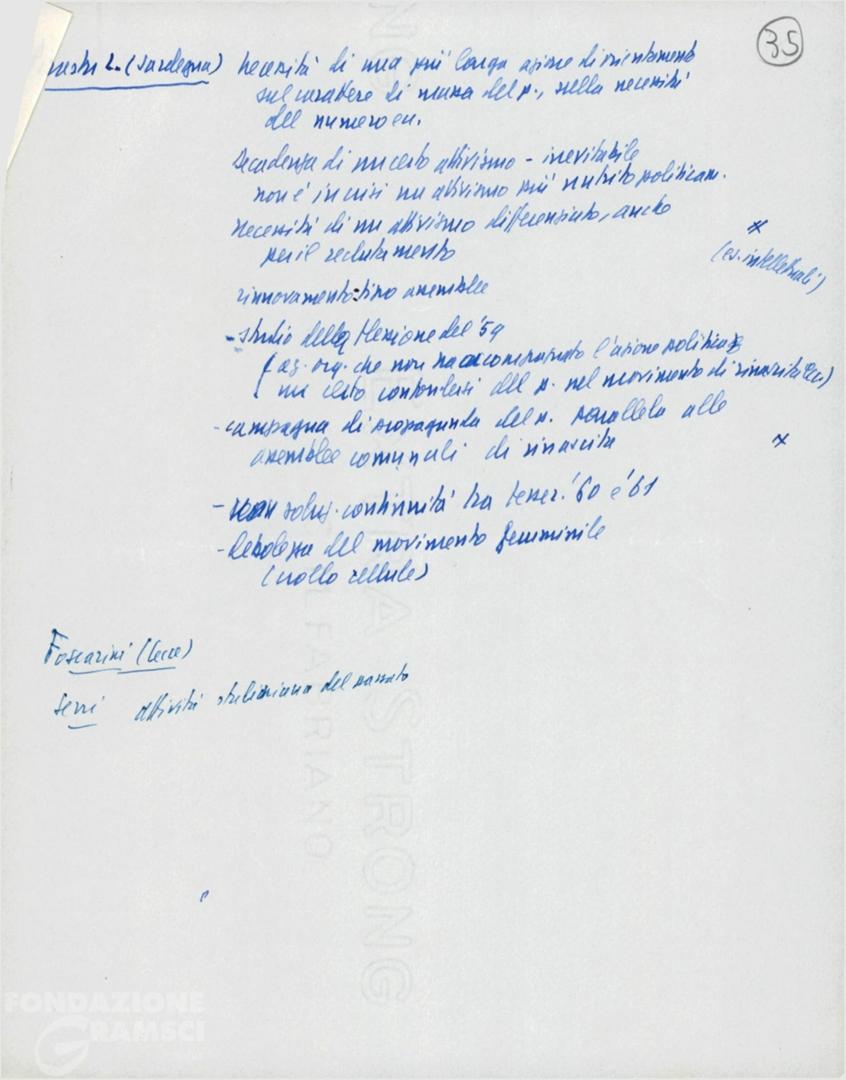 35
L. (Sardegna) necessità di una più larga azione di orientamento
sul carattere di massa del p., sulla necessità
del numero ecc.
Decadenza di un certo attivismo - inevitabile
non è in crisi un attivismo più nutrito politicam.
necessità di un attivismo differenziato, anche
per il reclutamento
x
(es. intellettuali)
rinnovamento: tipo assemblee
- studio della flessione del '59
(az. org. che non ha accompagnato l'azione politica
un certo confondersi del p. nel movimento di rinascita ecc)
- campagna di propaganda del p. parallela alle
assemblee comunali di rinascita
x
- soluz. continuità tra tesser. '60 e '61
- debolezza del movimento femminile
(crollo cellule)
Foscarini (Lecce)
Serri attività del passato
EXTRA STRONG
FABRIANO
FONDAZIONE
GRAMSCI